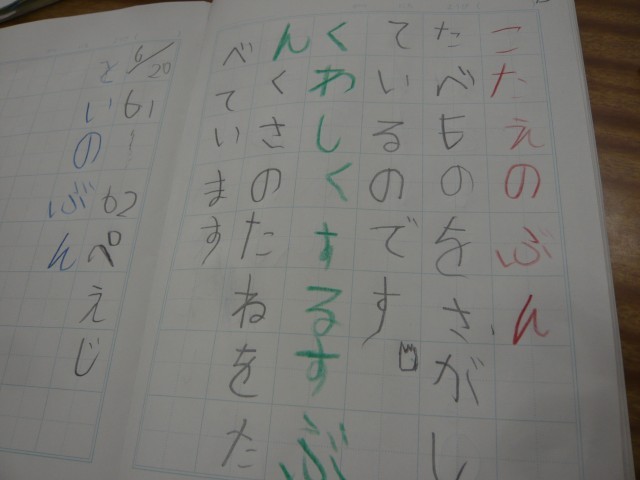 こたえのぶん
たべものをさがし
ているのです
くわしくするすぶ
んくさのたねをた
べています
6/20 61~62ぺえじ
といのぶん